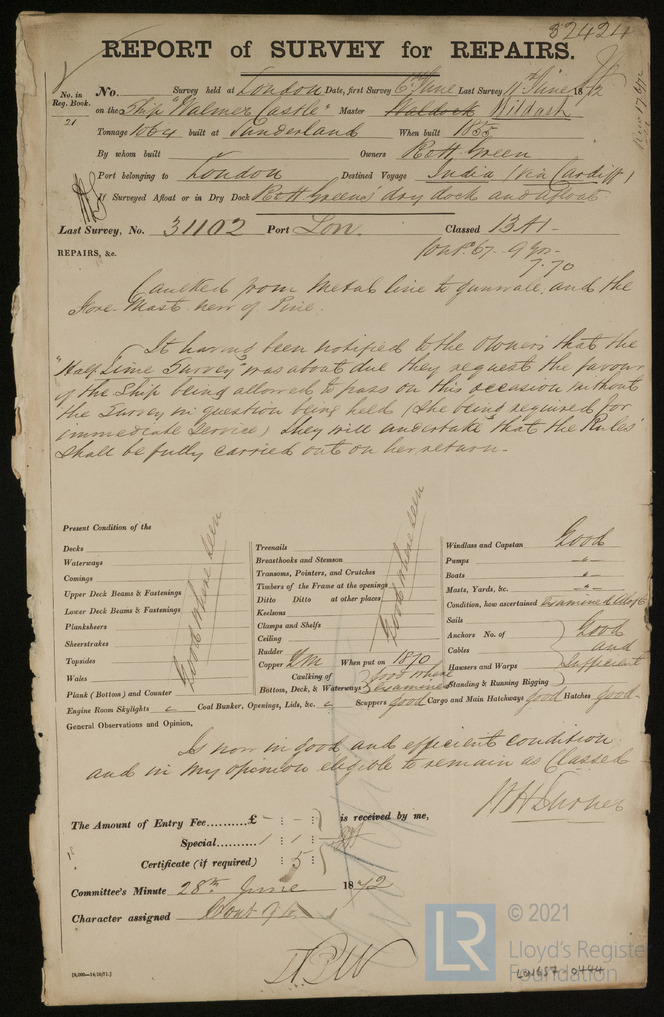 32424
REPORT of SURVEY for REPAIRS.
No. in Reg. Book.
21
No. Survey held at London Date, first Survey 6th June Last Survey 11th June 1872
on the Ship "Walmer Castle" Master Waldock Wildash
Tonnage 1064 built at Sunderland When built 1855
By whom built Owners R & H Green
Port belonging to London Destined Voyage India (via Cardiff)
If Surveyed Afloat or in Dry Dock R & H Greens' dry dock and afloat
Last Survey, No. 31102 Port Lon. Classed 13 A1
Cont. 67 - 9 Yrs -
7.70
REPAIRS, &c.
Caulked from Metal line to gunwale, and the
Fore Mast new of Pine.
It having been notified to the Owners that the
"Half Time Survey" was about due they request the favour
of the Ship being allowed to pass on this occasion without
the Survey in question being held (she being required for
immediate service) they will undertake that the Rules
shall be fully carried out on her return.
Present Condition of the
Decks
Waterways
Comings
Upper Deck Beams & Fastenings
Lower Deck Beams & Fastenings
Planksheers
Sheerstrakes
Topsides
Wales
Plank (Bottom) and Counter
Good where seen
Engine Room Skylights Coal Bunker, Openings, Lids, &c.
Treenails
Breasthooks and Stemson
Transoms, Pointers, and Crutches
Timbers of the Frame at the openings
Ditto Ditto at other places
Keelsons
Clamps and Shelfs
Ceiling
Rudder
Good where seen
Copper YM When put on 1870
Caulking of Bottom, Deck, & Waterways Good where examined
Windlass and Capstan Good
Pumps -"-
Boats -"-
Masts, Yards, &c. -"-
Condition, how ascertained Examined Aloft
Sails
Anchors No. of
Cables
Hawsers and Warps
Standing & Running Rigging
Good and sufficient
Scuppers good Cargo and Main Hatchways good Hatches good
General Observations and Opinion,
Is now in good and efficient condition
and in my opinion eligible to remain as Classed
The Amount of Entry Fee..........£ - : - : is received by me,
Special.......... 1 : 1 : -
Certificate (if required) : 5 :
Committee's Minute 28th June 1872
Character assigned Cont
[8,000—14/10/71.]
LR
© 2021
Lloyd's Register
Foundation
LON657-0444